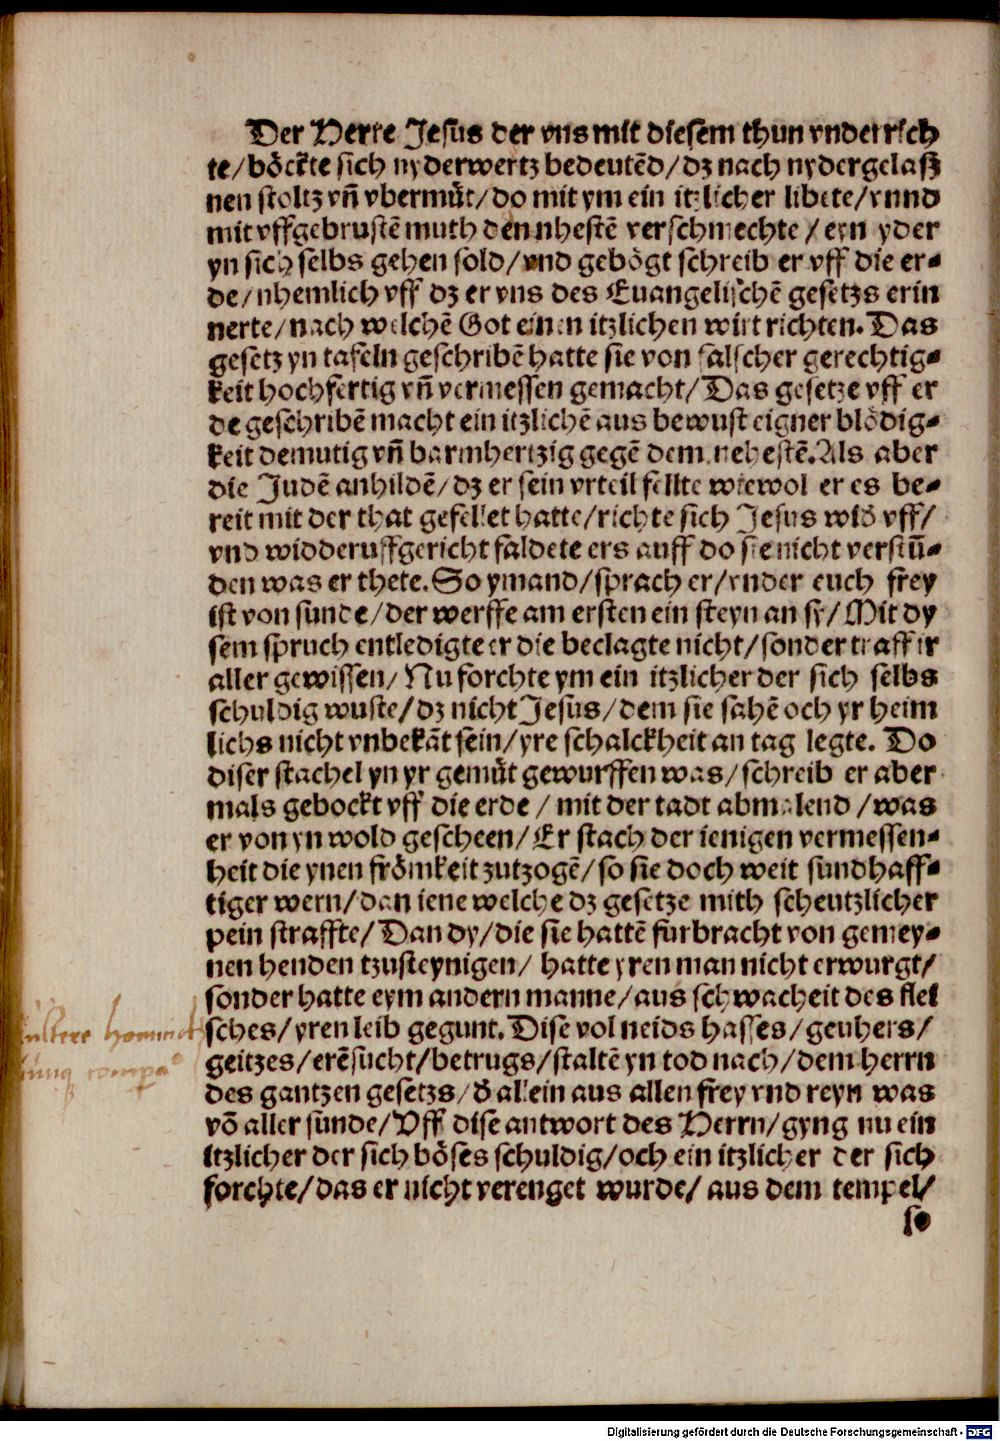 Der Herre Jesus der vns mit diesem thun vnderrich
te/böckte sich nyderwertz bedeutēd/dz nach nydergelaſz
nen stoltz vñ vbermůt/do mit ym ein itzlicher libete/vnnd
mit vffgebrustē muth den nhestē verschmechte/eyn yder
yn sich selbs gehen sold/vnd gebögt schreib er vff die er⸗
de/nhemlich vff dz er vns des Euangelischē gesetzs erin
nerte/nach welchē Got einen itzlichen wirt richten. Das
gesetz yn tafeln geschribē hatte sie von falscher gerechtig⸗
keit hochfertig vñ vermessen gemacht/Das gesetze vff er
de geschribē macht ein itzlichē aus bewust eigner blödig⸗
keit demutig vñ barmhertzig gegē dem nehestē. Als aber
die Judē anhildē/dz er sein vrteil fellte wiewol er es be⸗
reit mit der that gefellet hatte/richte sich Jesus wid̄ vff/
vnd widderuffgericht faldete ers auff do sie nicht verstū⸗
den was er thete. So ymand/sprach er/vnder euch frey
ist von sunde/der werffe am ersten ein steyn an sy/Mit dy
sem spruch entledigte er die beclagte nicht/sonder traff ir
aller gewissen/Nu forchte ym ein itzlicher der sich selbs
schuldig wuste/dz nicht Jesus/dem sie sahē och yr heim
lichs nicht vnbekāt sein/yre schalckheit an tag legte. Do
diser stachel yn yr gemůt gewurffen was/schreib er aber
mals gebockt vff die erde/mit der tadt abmalend/was
er von yn wold gescheen/Er stach der ienigen vermessen⸗
heit die ynen frömkeit zutzogē/so sie doch weit sundhaff⸗
tiger wern/dan iene welche dz gesetze mith scheutzlicher
pein straffte/Dan dy/die sie hattē furbracht von gemey⸗
nen henden tzusteynigen/hatte yren man nicht erwurgt/
sonder hatte eym andern manne/aus schwacheit des flei
sches/yren leib gegunt. Dise vol neids hasses/geuhers/
geitzes/erēsucht/betrugs/staltē yn tod nach/dem herrn
des gantzen gesetzs/d̄ allein aus allen frey vnd reyn was
vō aller sunde/Vff dise antwort des Herrn/gyng nu ein
itzlicher der sich böses schuldig/och ein itzlicher der sich
forchte/das er nicht verenget wurde/aus dem tempel/
so
Digitalisierung gefördert durch die Deutsche Forschungsgemeinschaft - DFG